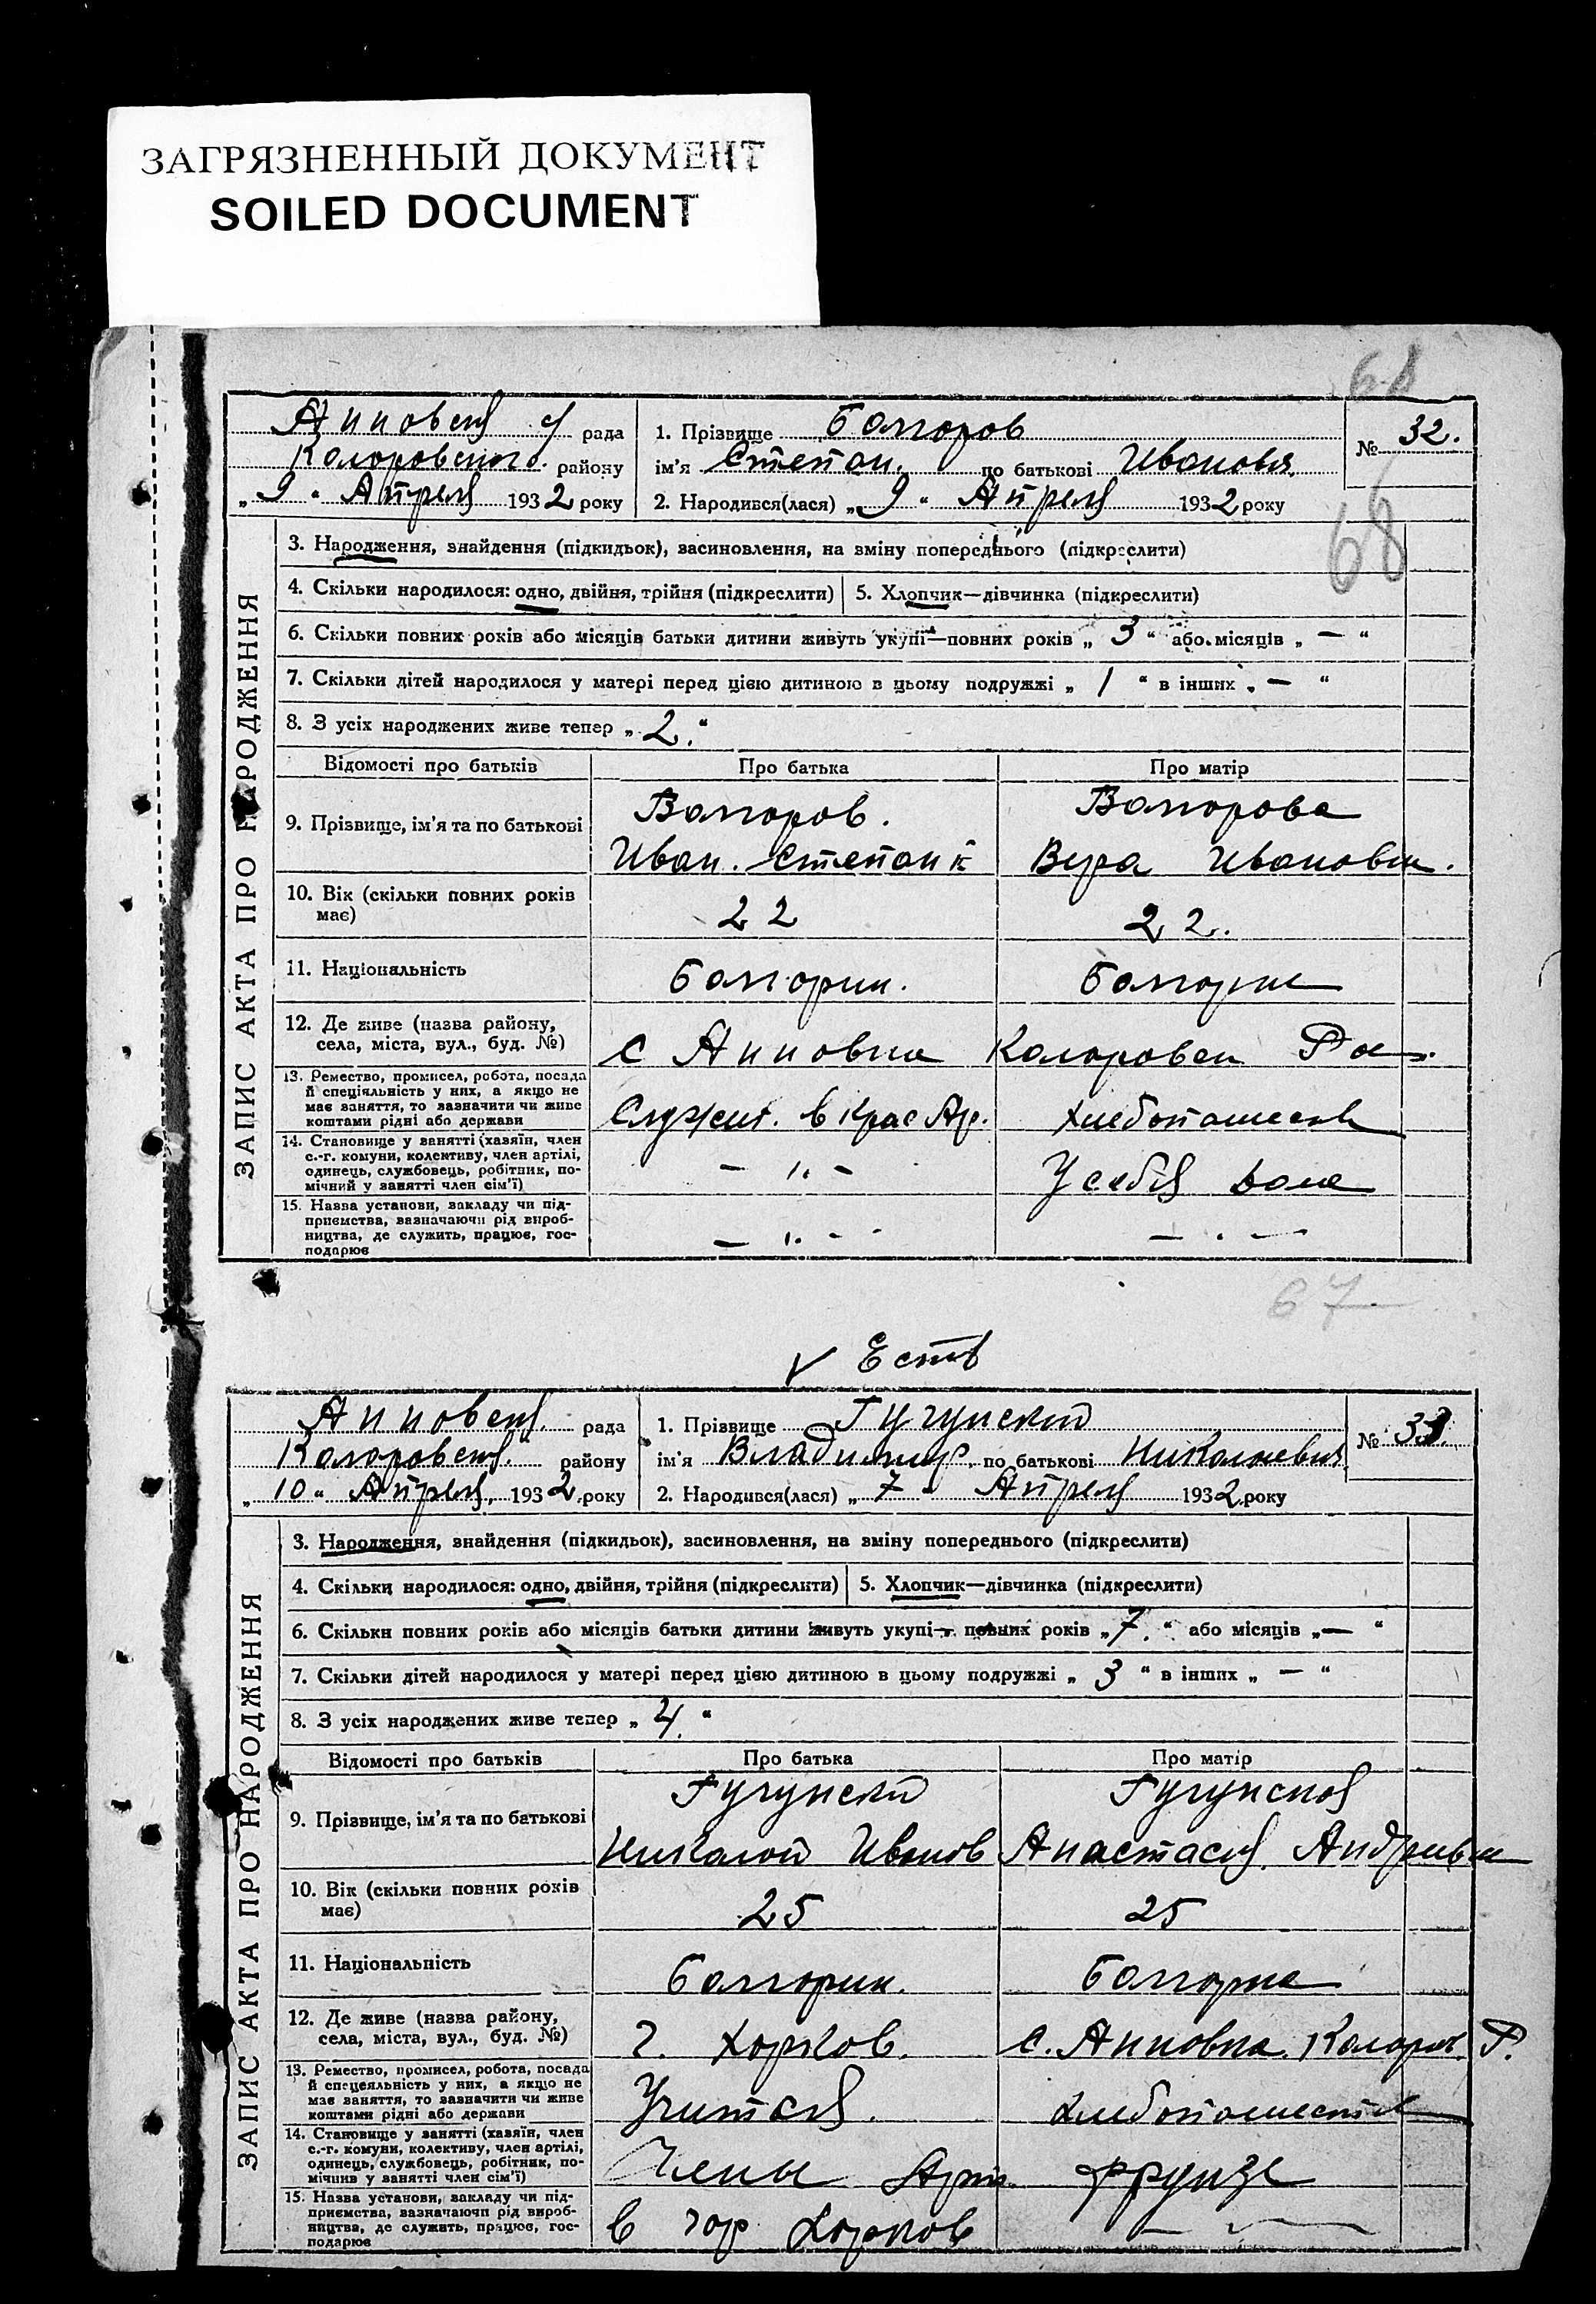 ЗАГРЯЗНЕННЫЙ ДОКУМЕНТ
SOILED DOCUMENT
68
Анновск с/ рада
1. Прізвище Болгоров
№ 32.
Коларовского району
ім'я Степан. по батькові Ивановя.
„9“ Апреля 1932 року
2. Народився(лася) „9“ Апреля 1932 року
68
ЗАПИС АКТА ПРО НАРОДЖЕННЯ
3. Народження, знайдення (підкидьок), засиновлення, на зміну попереднього (підкреслити)
4. Скільки народилося: одно, двійня, трійня (підкреслити)
5. Хлопчик—дівчинка (підкреслити)
6. Скільки повних років або місяців батьки дитини живуть укупі—повних років „3“ або місяців „—“
7. Скільки дітей народилося у матері перед цією дитиною в цьому подружжі „1“ в інших „—“
8. З усіх народжених живе тепер „2.“
Відомості про батьків
Про батька
Про матір
9. Прізвище, ім'я та по батькові
Болгоров.
Иван. Степан
Болгорова
Вера Ивановн.
10. Вік (скільки повних років
має)
22
22.
11. Національність
Болгорин.
Болгорка
12. Де живе (назва району,
села, міста, вул., буд. №)
с Анновка Коларовск Ра-.
13. Ремество, промисел, робота, посада
й спеціяльність у них, а якщо не
має заняття, то зазначити чи живе
коштами рідні або держави
Служит. в Крас Ар.
Хлебопашест
14. Становище у занятті (хазяїн, член
с.-г. комуни, колективу, член артілі,
одинець, службовець, робітник, по-
мічний у занятті член сім'ї)
— „ —
У себя дома
15. Назва установи, закладу чи під-
приємства, зазначаючи рід вироб-
ництва, де служить, працює, гос-
подарює
— „ —
— „ —
67
√ Есть
Анновск рада
1. Прізвище Гугунский
№ 33.
Коларовск. району
ім'я Владимир. по батькові Николаевич
„10“ Апреля 1932 року
2. Народився(лася) „7“ Апреля 1932 року
ЗАПИС АКТА ПРО НАРОДЖЕННЯ
3. Народження, знайдення (підкидьок), засиновлення, на зміну попереднього (підкреслити)
4. Скільки народилося: одно, двійня, трійня (підкреслити)
5. Хлопчик—дівчинка (підкреслити)
6. Скільки повних років або місяців батьки дитини живуть укупі—повних років „7.“ або місяців „—“
7. Скільки дітей народилося у матері перед цією дитиною в цьому подружжі „3“ в інших „—“
8. З усіх народжених живе тепер „4.“
Відомості про батьків
Про батька
Про матір
9. Прізвище, ім'я та по батькові
Гугунский
Николай Иванов
Гугунская
Анастасия Андреевн
10. Вік (скільки повних років
має)
25
25
11. Національність
Болгорин.
Болгорка
12. Де живе (назва району,
села, міста, вул., буд. №)
г. Хорков.
с. Анновка. Коларов. Р.
13. Ремество, промисел, робота, посада
й спецеяльність у них, а якщо не
має заняття, то зазначити чи живе
коштами рідні або держави
Учитель.
Хлебопашест
14. Становище у занятті (хазяїн, член
с.-г. комуни, колективу, член артілі,
одинець, службовець, робітник, по-
мічнив у занятті член сім'ї)
Члены Арт. Фрунзе
15. Назва установи, закладу чи під-
приємства, зазначаючи рід вироб-
ництва, де служить, працює, гос-
подарює
в гор Хорков
— „ —